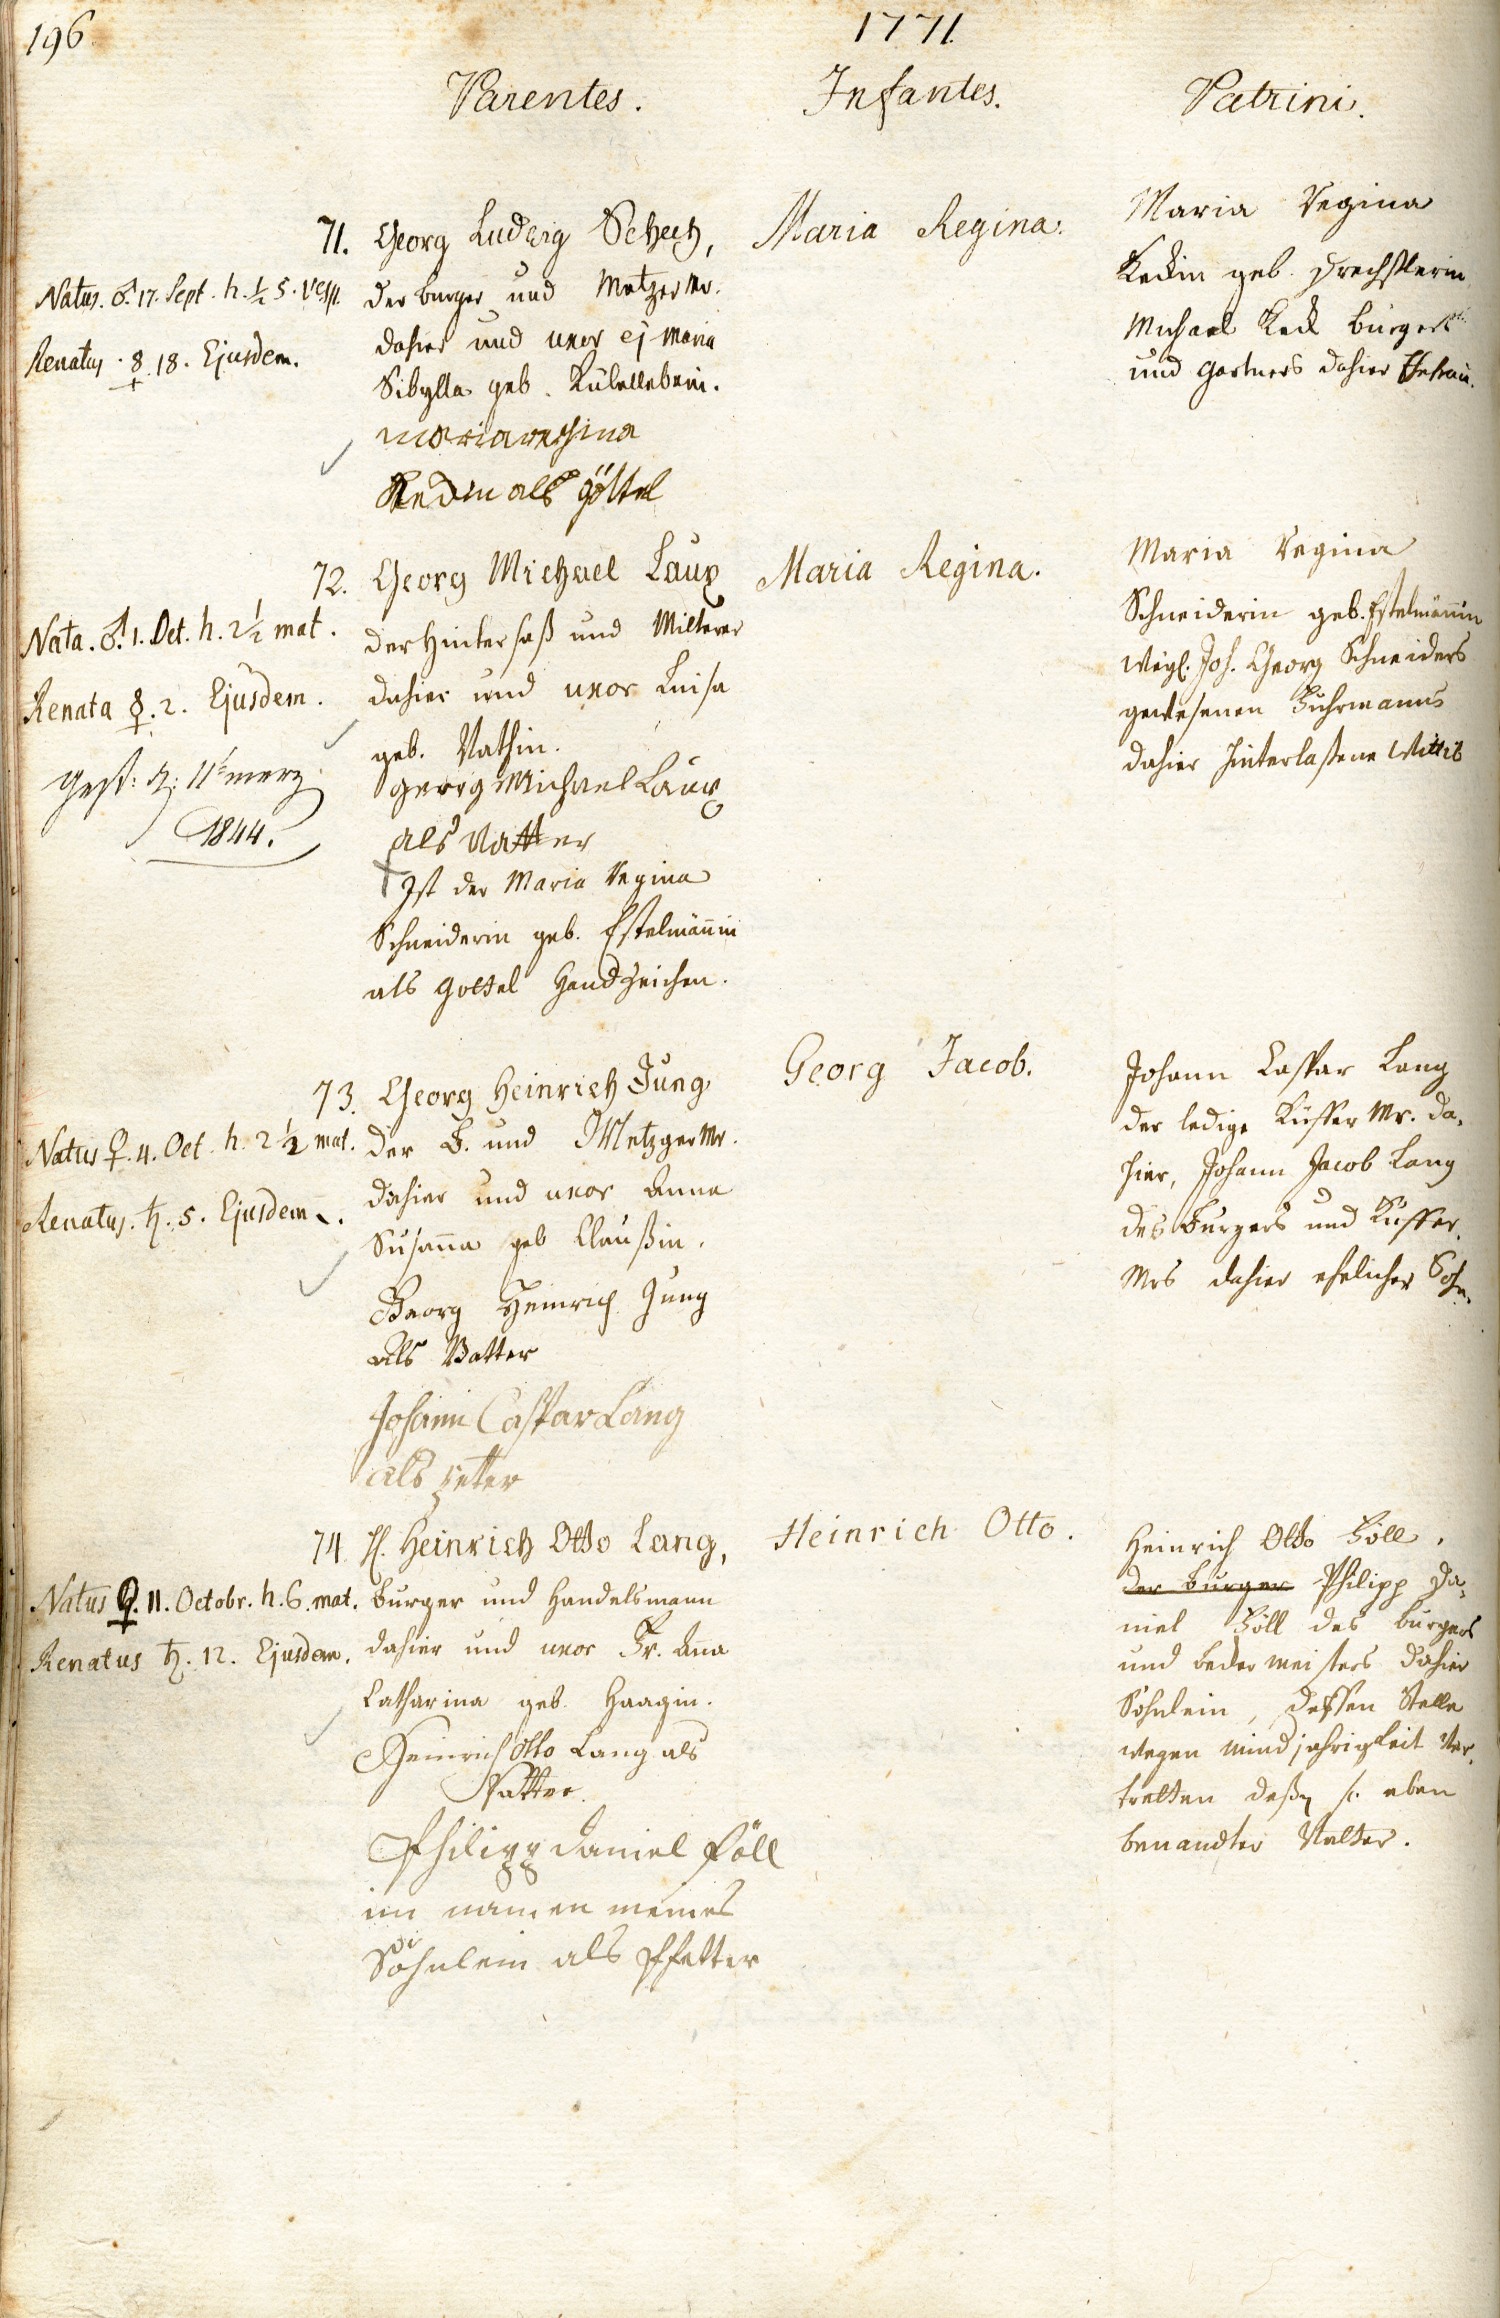 196
1771.
Parentes. Infantes. Patrini.
71. Georg Ludwig Schech,
der burger und Metzger Mr.
dahier und uxor ej Maria
Sibylla geb.
Natus. ♂. 17. Sept. h. ½ 5. Vesp.
Renatus. ☿. 18. Ejusdem.
als göttel
Maria Regina.
Maria Regina
Keckin geb. Drechslerin
Michael Keck burgers
und gartners dahier Ehefrau.
72. Georg Michael Laux
der Hintersaß und
dahier und uxor Luisa
geb. Rathin.
Nata. ♂. 1. Oct. h. 2½ mat.
Renata ☿. 2. Ejusdem.
gest: d: 11t merz
1844.
georg Michael Laux
als Vatter
Ist der Maria Regina
Schneiderin geb. Estelmännin
als gottel Handzeichen.
Maria Regina.
Maria Regina
Schneiderin geb. Estelmännin
Joh. Georg Schneiders
gewesenen Fuhrmanns
dahier hinterlaßene Wittib
73. Georg Heinrich Jung
der B. und Metzger Mr.
dahier und uxor Anna
Susanna geb Claußin.
Natus ♀. 4. Oct. h. 2½ mat.
Renatus. ♄. 5. Ejusdem.
Georg Heinrich Jung
als Vatter
Johann Caspar Lang
als petter
Georg Jacob.
Johann Caspar Lang
der ledige Küffer Mr. da-
hier, Johann Jacob Lang
des Burgers und Küffer-
Mrs dahier ehelicher Sohn.
74. H. Heinrich Otto Lang,
burger und Handelsmann
dahier und uxor Fr. Ana
Catharina geb. Haagin.
Natus ♀. 11. Octobr. h. 6. mat.
Renatus ♄. 12. Ejusdem.
Heinrich Otto Lang als
Vatter.
Philipp Daniel Föll
im namen meines
Söhnlein als Pfetter
Heinrich Otto.
Heinrich Otto Föll,
der burger Philipp Da-
niel Föll des burgers
und beckermeisters dahier
Söhnlein, deßsen Stelle
wegen mindjahrigkeit ver-
tretten deßen H. eben
benandter Vatter.